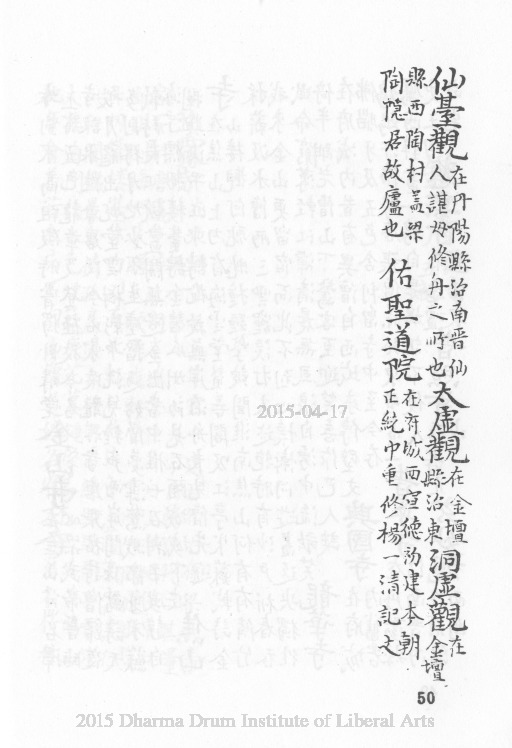 仙臺觀在丹陽縣治南晉仙人諶姆修丹之所也太虛觀在金壇縣治東洞虛觀在金壇
縣西陶村蓋梁陶隱居故廬也佑聖道院在府城西宣德初建本朝正統中重修楊一清記文
2015-04-17
50
2015 Dharma Drum Institute of Liberal Arts